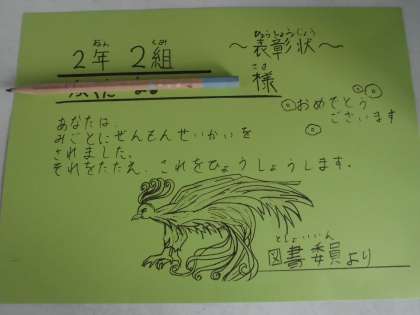 ～表彰状～
ひょうしょうじょう
2年 2組
ねん くみ
様
さま
おめでとう
ございます
あなたは、
みごとにぜんもんせいかいを
されました。
それをたたえ、これをひょうしょうします。
としょいいん
図書委員より